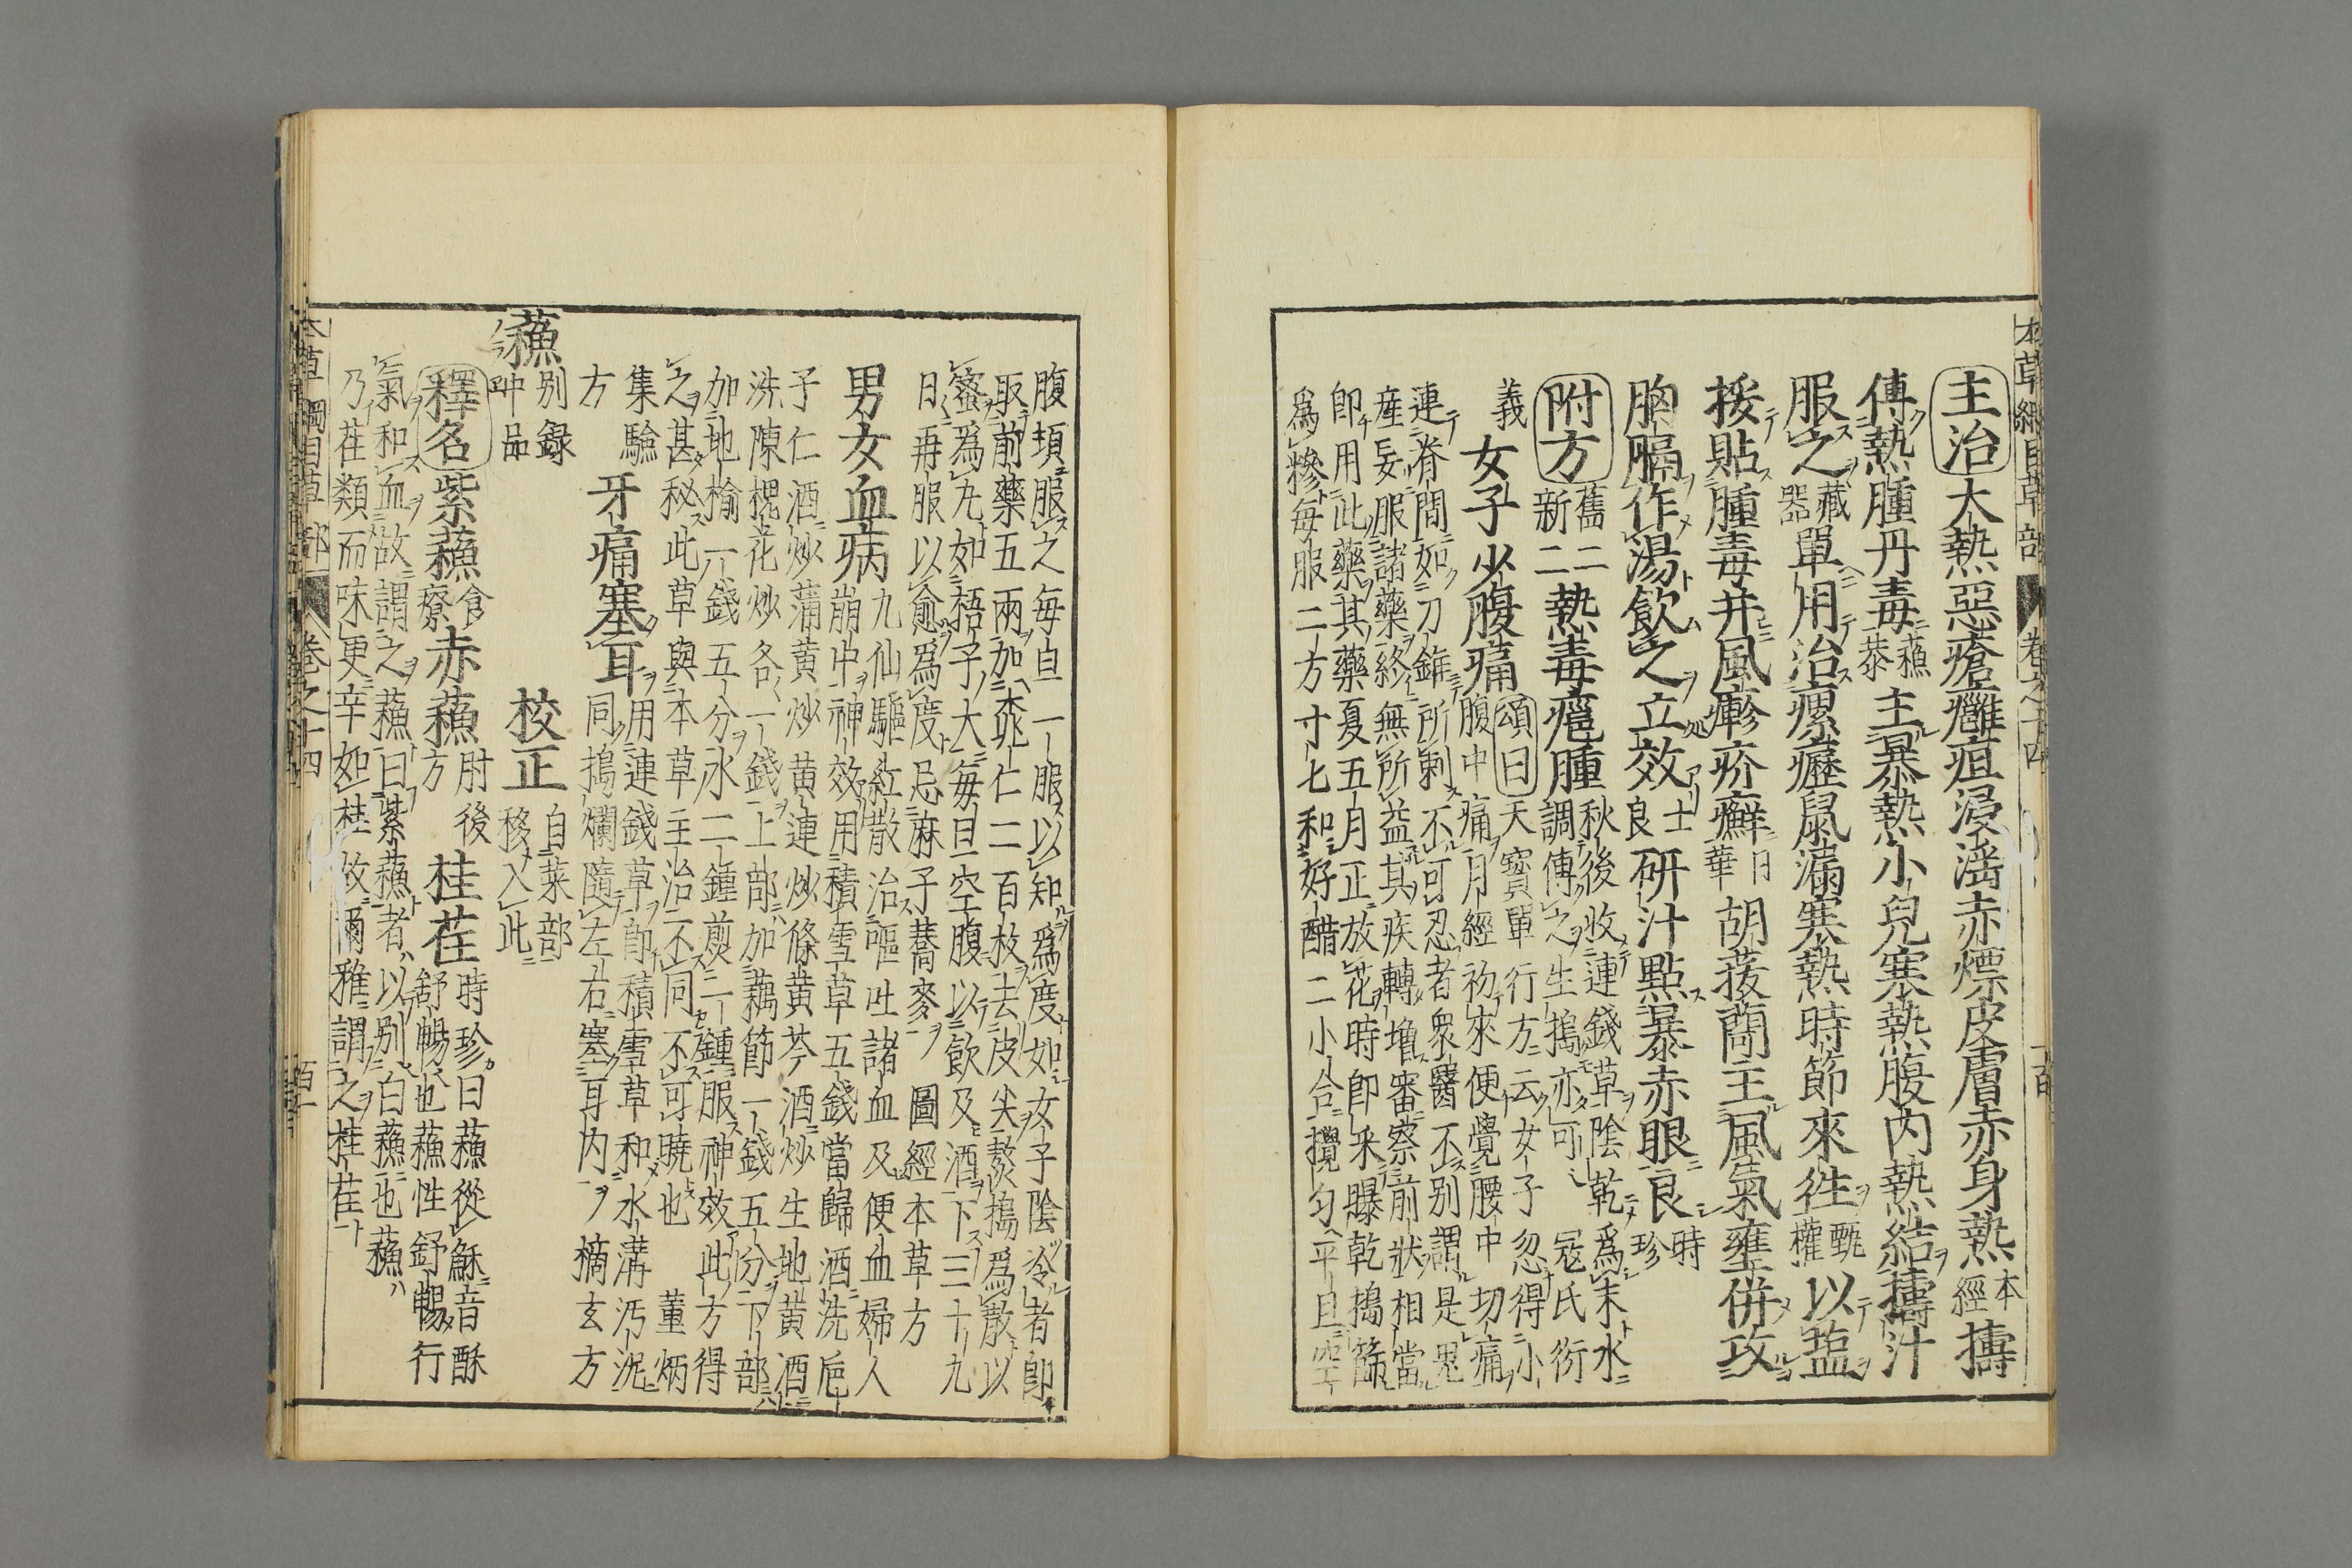 本草綱目草部 卷之十四
主治大熱惡瘡癰疽浸淫赤熛皮膚赤身熱本經擣
傅熱腫丹毒蘓恭主暴熱小兒寒熱腹内熱結擣汁
服之藏器單用治瘰癧鼠漏寒熱時節來徃甄權以塩
挼貼腫毒并風瘮疥癬日華胡菝䕡主風氣壅併攻
胸膈作湯飲之立效士良研汁點暴赤眼良時珍
附方舊二新二熱毒癰腫秋後收連錢草陰乾爲末水調傅之生搗亦可 冦氏衍
義 女子少腹痛頌曰天寳單行方云女子忽得小腹中痛月經初來便覺腰中切痛
連脊間如刀錐所剌不可忍者衆醫不别謂是鬼
疰妄服諸藥終無所益其疾轉増審察前狀相當
即用此藥其藥夏五月正放花時即采曝乾搗篩
爲糝每服二方寸七和好醋二小合攪匀平旦空
腹頓服之每旦一服以知爲度如女子陰冷者即
取前藥五兩加桃仁二百枚去皮尖熬搗爲散以
蜜爲丸如梧子大每旦空腹以飲及酒下三十丸
日再服以愈爲度忌麻子蕎麥 圖經本草方
男女血病九仙驅紅散治嘔吐諸血及便血婦人崩中神效用積雪草五錢當歸酒洗梔
子仁酒炒蒲黄炒黄連炒條黄芩酒炒生地黄酒
洗陳槐花炒各一錢上部加藕節一錢五分下部
加地楡一錢五分水二鍾煎一鍾服神效此方得
之甚秘此草與本草主治不同不可曉也 董炳
集驗方 牙痛塞耳用連錢草即積雪草和水溝汚泥同搗爛隨左右塞耳内 摘玄方
蘓别録中品 校正自菜部移入此
釋名紫蘓食療赤蘓肘後方桂荏時珍曰蘓從穌音酥舒暢也蘓性舒暢行
氣和血故謂之蘓曰紫蘓者以别白蘓也蘓
乃荏類而味更辛如桂故爾雅謂之桂荏
本草綱目草部 卷之十四